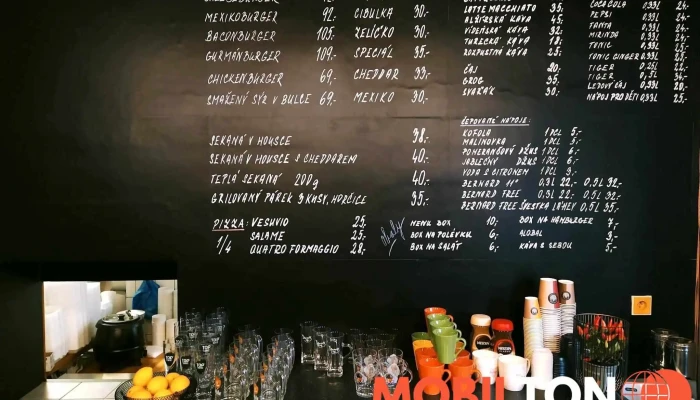 MEXIKOBURGER 92,-
BACONBURGER 105,-
GURMÁNBURGER 109,-
CHICKENBURGER 69,-
SMAŽENÝ SÝR V BULCE 69,-
CIBULKA 30,-
ZELÍČKO 30,-
SPECIÁL 35,-
CHEDDAR 33,-
MEXIKO 30,-
LATTE MACCHIATO 35,-
ALŽÍRSKÁ KÁVA 45,-
VÍDEŇSKÁ KÁVA 32,-
TURECKÁ KÁVA 18,-
ROZPUSTNÁ KÁVA 25,-
ČAJ 20,-
GROG 35,-
SVAŘÁK 30,-
COCA COLA 0,33L 24,-
PEPSI
FANTA
MIRINDA
TONIC
TONIC GINGER 0,25L
TIGER 0,25L
TIGER 0,5L
LEDOVÝ ČAJ 0,33L
NÁPOJ PRO DĚTI 0,33L 25,-
SEKANÁ V HOUSCE 38,-
SEKANÁ V HOUSCE S CHEDDAREM 40,-
TEPLÁ SEKANÁ 200g 40,-
GRILOVANÝ PÁREK 2 KUSY, HOŘČICE 35,-
ČEPOVANÉ NÁPOJE:
KOFOLA 1 DCL 5,-
MALINOVKA 1 DCL 5,-
POMERANČOVÝ DŽUS 1 DCL 6,-
JABLEČNÝ DŽUS 1 DCL 6,-
VODA S CITRONEM 1 DCL 3,-
BERNARD 11° 0,3L 22,- 0,5L 32,-
BERNARD FREE 0,3L 22,- 0,5L 32,-
BERNARD FREE ŠVESTKA LÁHEV 0,5L 35,-
PIZZA: VESUVIO 25,-
1/4 SALAME 25,-
QUATRO FORMAGGIO 28,-
Obaly
MENU BOX 10,-
BOX NA POLÉVKU 6,-
BOX NA SALÁT 6,-
BOX NA HAMBURGER 7,-
ALOBAL 3,-
KÁVA S SEBOU 5,-
MOBILTON